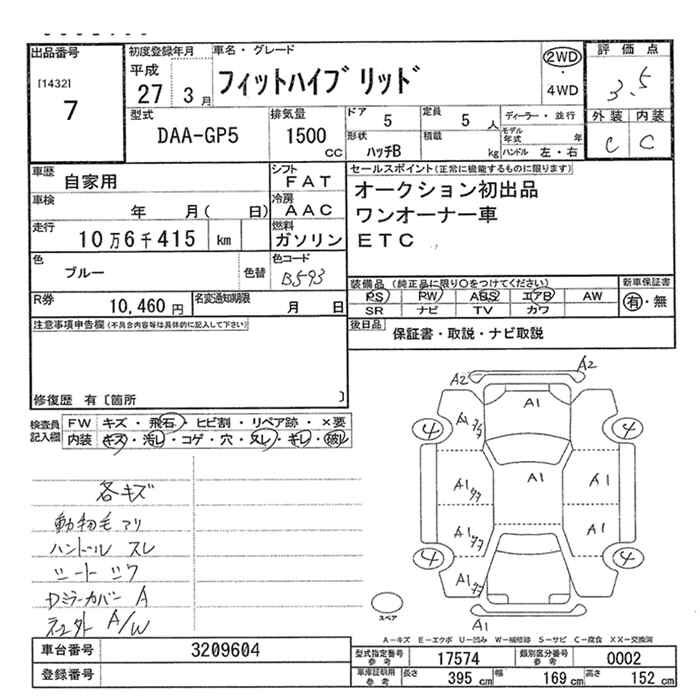 出品番号 初度登録年月 車名・グレード 評価点
[1432] 平成 フィットハイブリッド 2WD 3.5
7 27 3月 ・ 4WD
型式 排気量 ドア 5 定員 5人 ディーラー・並行 外装 内装
DAA-GP5 1500cc 形状 ハッチB 積載 kg モデル年式 年 C C
ハンドル 左・右
車歴 自家用 シフト FAT セールスポイント(正常に機能するものに限ります)
車検 年 月( 日) 冷房 AAC オークション初出品
ワンオーナー車
走行 10万6千415 km 燃料 ガソリン ETC
色 ブルー 色替 色コード B593
装備品 (純正品に限り○をつけてください) 新車保証書
R券 10,460円 名変通知期限 月 日 PS PW ABS エアB AW 有・無
SR ナビ TV カワ
注意事項申告欄(不具合内容等は具体的に記入して下さい) 後日品 保証書・取説・ナビ取説
修復歴 有〔箇所 〕
検査員記入欄 FW キズ・飛石・ヒビ割・リペア跡・×要
内装 キズ・汚レ・コゲ・穴・スレ・キレ・破レ
各キズ
動物毛アリ
ハンドル スレ
シート シワ
Dミラーカバー A
A/W
A2 A2
A1
4 A1 4
A1 A1 A1
A1 A1
4 A1 4
スペア A1
A-キズ E-エクボ U-凹み W-補修跡 S-サビ C-腐食 XX-交換済
車台番号 3209604 型式指定番号 参考 17574 類別区分番号 参考 0002
登録番号 車庫証明用 参考 長さ 395cm 幅 169cm 高さ 152cm